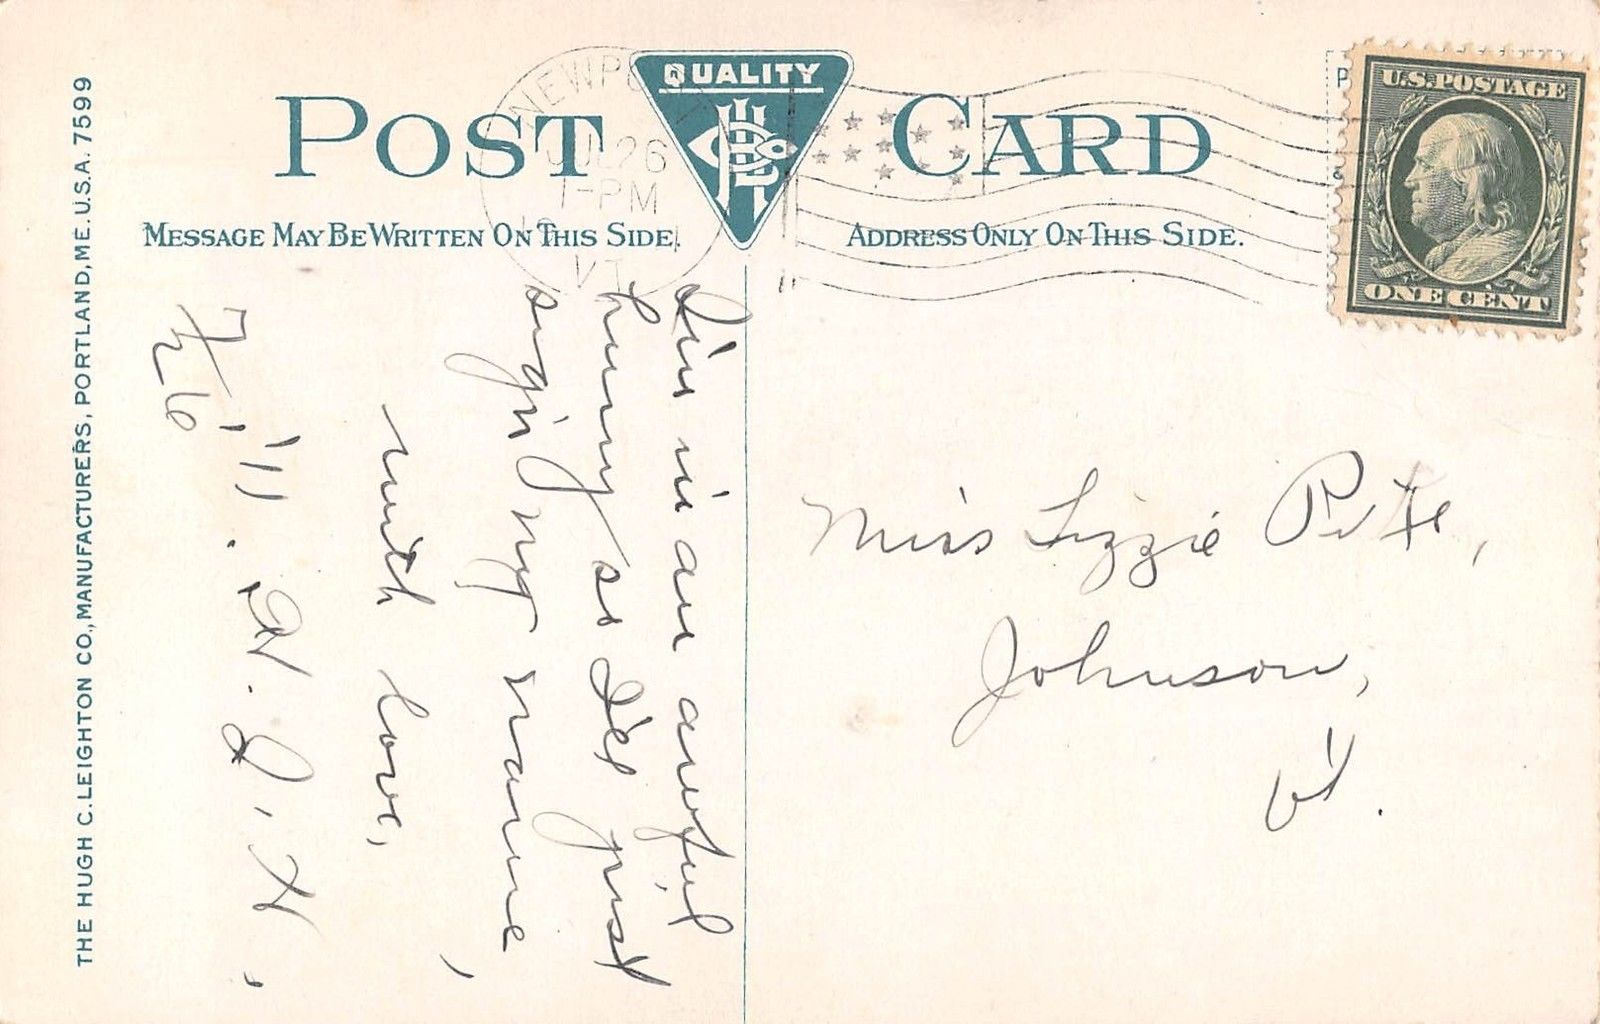 POST CARD
QUALITY
NEWPO
JUL 26
1-PM
VT.
MESSAGE MAY BE WRITTEN ON THIS SIDE.
ADDRESS ONLY ON THIS SIDE.
U.S. POSTAGE
ONE CENT
THE HUGH C. LEIGHTON CO., MANUFACTURERS, PORTLAND, ME. U.S.A. 7599
I'm in an awful
hurry so I'll just
sign my name,
with love,
H. J. H.,
7/26, '11.
Miss Lizzie
Johnson,
Vt.